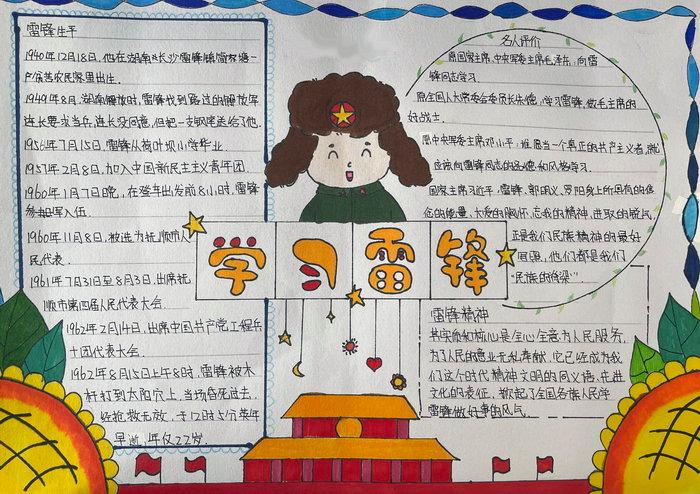 雷锋生平
1940年12月18日,他在湖南长沙雷锋镇雷家塘一
户贫苦农民家里出生.
1949年8月.湖南解放时,雷锋找到路过的解放军
连长要求当兵,连长没同意,但把一支钢笔送给了他.
1954年7月15日,雷锋从荷叶坝小学毕业.
1957年2月8日,加入中国新民主主义青年团.
1960年1月7日晚,在登车出发前8小时,雷锋
参加军入伍.
1960年11月8日,被选为抚顺市人
民代表.
1961年7月31日至8月3日,出席抚
顺市第四届人民代表大会.
1962年2月14日,出席中国共产党工程兵
十团代表大会.
1962年8月15日上午8时,雷锋被木
杆打到太阳穴上,当场昏死过去,
经抢救无效,于12时5分英年
早逝,年仅22岁.
学习雷锋
名人评价
原国家主席,中央军委主席毛泽东:向雷
锋同志学习.
原全国人大常委会委员长朱德:学习雷锋,做毛主席的
好战士.
原中央军委主席邓小平:谁愿当一个真正的共产主义者,就
应该向雷锋同志的品德和风格学习.
国家主席习近平:雷锋,郭明义,罗阳身上所具有的信
念的能量,大爱的胸怀,忘我的精神,进取的锐气,
正是我们民族精神的最好
写照,他们都是我们
“民族的脊梁”.
雷锋精神
其实质和核心是全心全意为人民服务,
为了人民的事业无私奉献,它已经成为我
们这个时代精神文明的同义语,先进
文化的表征,掀起了全国各族人民学
雷锋做好事的风气.